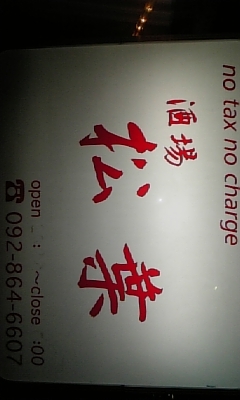 no tax no charge
酒場
松葉
open : ~close :00
☎092-864-6607